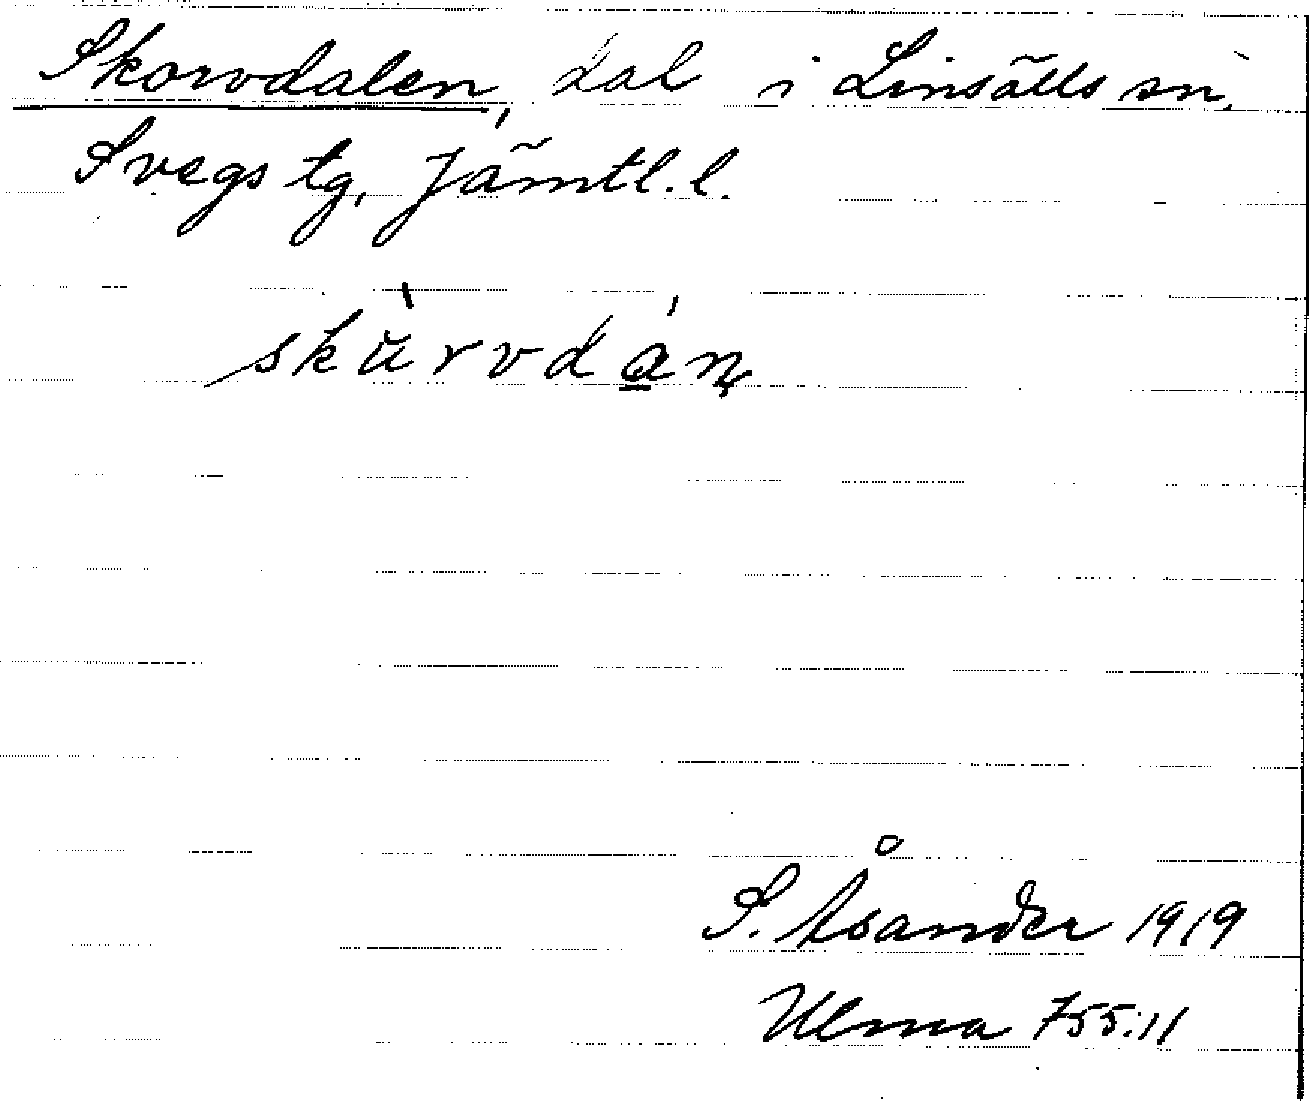 Skorvdalen, dal i Linsälls sn,
Svegs tg, Jämtl. l.
skùrvdán
S. Åsander 1919
Ulma 755:11